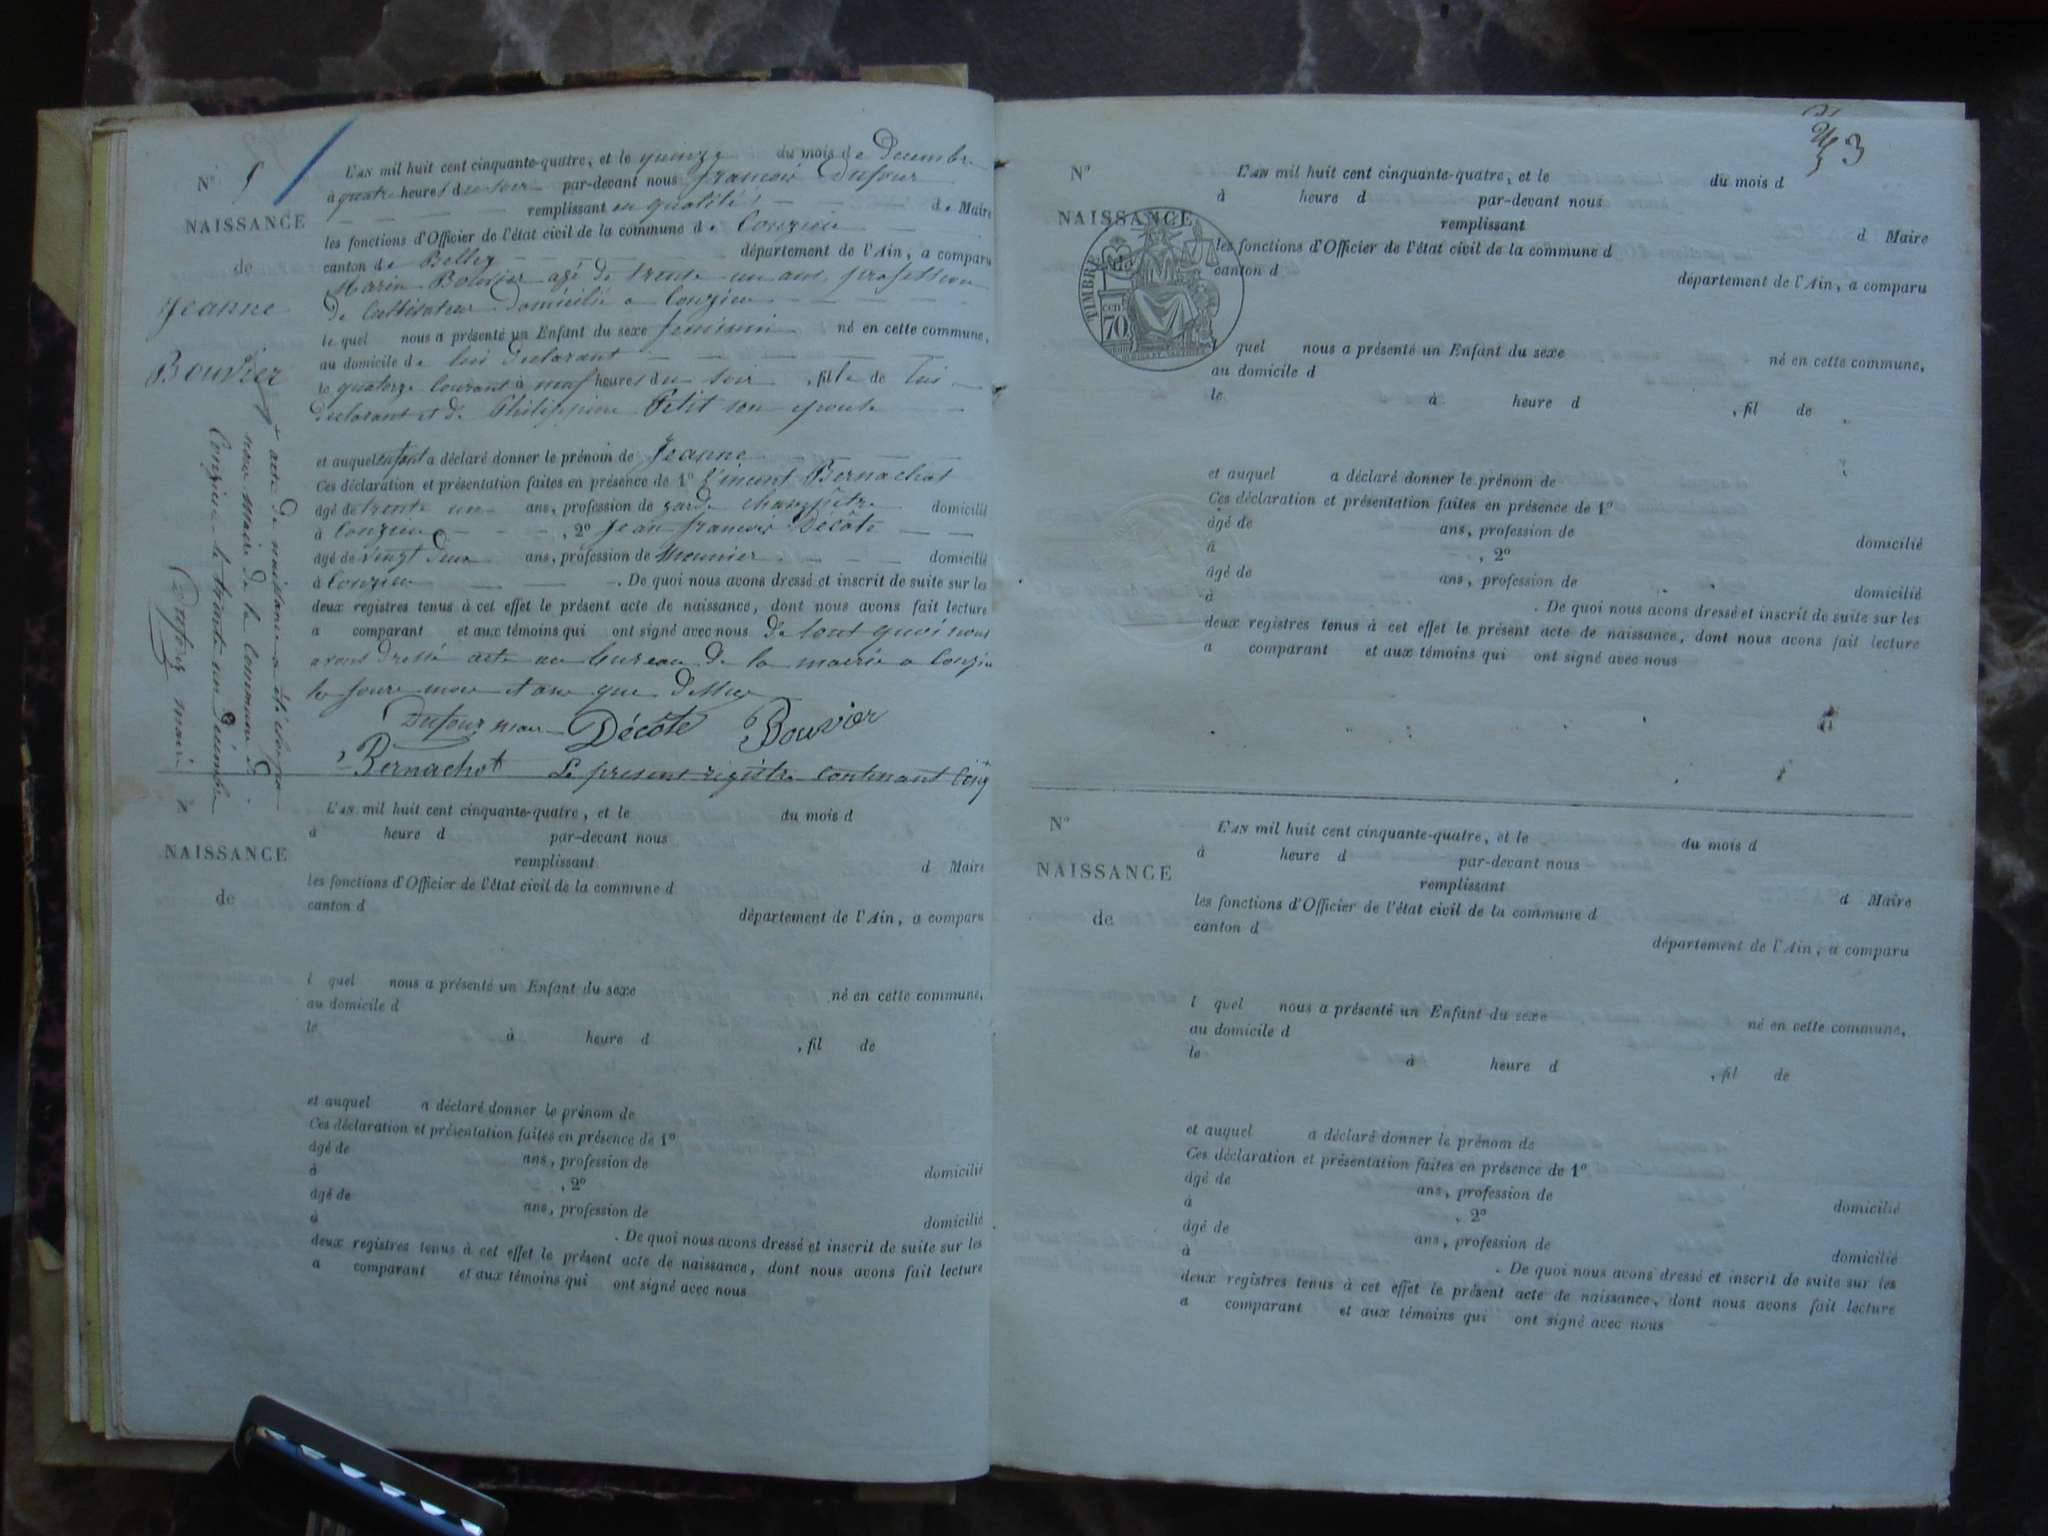 N° 5
L'AN mil huit cent cinquante-quatre, et le quinze du mois de Decembre
à quatre heures du soir par-devant nous françois Dufour
NAISSANCE
remplissant en qualité de Maire
les fonctions d'Officier de l'état civil de la commune de Conzieu
de
canton de Belley département de l'Ain, a comparu
Marin Bouvier agé de trente un ans, profession
Jeanne
de Cultivateur domicilié a Conzieu
le quel nous a présenté un Enfant du sexe feminin né en cette commune,
Bouvier
au domicile de lui declarant
le quatorze Courant à neuf heures du soir, fille de lui
declarant et de Philippine Petit son epouse
et auquel enfant a déclaré donner le prénom de Jeanne
Ces déclaration et présentation faites en présence de 1° Vincent Bernachot
âgé de trente un ans, profession de garde champêtre domicilié
à Conzieu, 2° Jean françois Décôte
âgé de vingt deux ans, profession de Meunier domicilié
à Conzieu. De quoi nous avons dressé et inscrit de suite sur les
deux registres tenus à cet effet le présent acte de naissance, dont nous avons fait lecture
a comparant et aux témoins qui ont signé avec nous De tout quoi nous
avons dressé acte au bureau de la mairie a Conzieu
les jour mois et an que dessus
Dufour maire Décôte Bouvier
Bernachot Le present registre contenant cinq
acte de naissance a été clos par
nous Maire de la Commune de
Conzieu le trente un Décembre
Dufour maire
L'AN mil huit cent cinquante-quatre, et le du mois d
à heure d par-devant nous
NAISSANCE
remplissant d Maire
les fonctions d'Officier de l'état civil de la commune d
de
canton d département de l'Ain, a comparu
l quel nous a présenté un Enfant du sexe né en cette commune,
au domicile d
le à heure d , fil de
et auquel a déclaré donner le prénom de
Ces déclaration et présentation faites en présence de 1°
âgé de ans, profession de domicilié
à , 2°
âgé de ans, profession de domicilié
à . De quoi nous avons dressé et inscrit de suite sur les
deux registres tenus à cet effet le présent acte de naissance, dont nous avons fait lecture
a comparant et aux témoins qui ont signé avec nous
3
N°
L'AN mil huit cent cinquante-quatre, et le du mois d
à heure d par-devant nous
NAISSANCE
remplissant d Maire
les fonctions d'Officier de l'état civil de la commune d
de
canton d département de l'Ain, a comparu
TIMBRE
70
l quel nous a présenté un Enfant du sexe né en cette commune,
au domicile d
le à heure d , fil de
et auquel a déclaré donner le prénom de
Ces déclaration et présentation faites en présence de 1°
âgé de ans, profession de domicilié
à , 2°
âgé de ans, profession de domicilié
à . De quoi nous avons dressé et inscrit de suite sur les
deux registres tenus à cet effet le présent acte de naissance, dont nous avons fait lecture
a comparant et aux témoins qui ont signé avec nous
N°
L'AN mil huit cent cinquante-quatre, et le du mois d
à heure d par-devant nous
NAISSANCE
remplissant d Maire
les fonctions d'Officier de l'état civil de la commune d
de
canton d département de l'Ain, a comparu
l quel nous a présenté un Enfant du sexe né en cette commune,
au domicile d
le à heure d , fil de
et auquel a déclaré donner le prénom de
Ces déclaration et présentation faites en présence de 1°
âgé de ans, profession de domicilié
à , 2°
âgé de ans, profession de domicilié
à . De quoi nous avons dressé et inscrit de suite sur les
deux registres tenus à cet effet le présent acte de naissance, dont nous avons fait lecture
a comparant et aux témoins qui ont signé avec nous